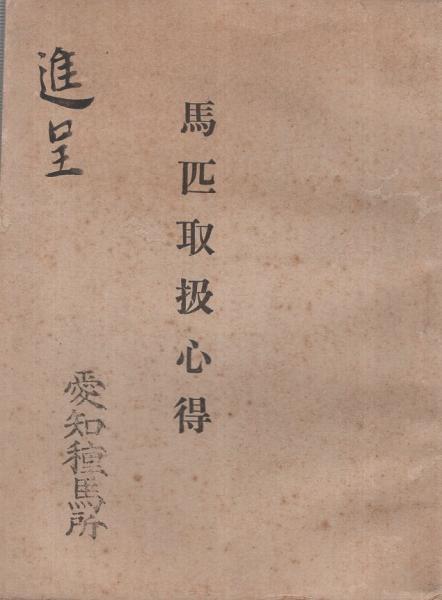 馬匹取扱心得
進呈
愛知種馬所